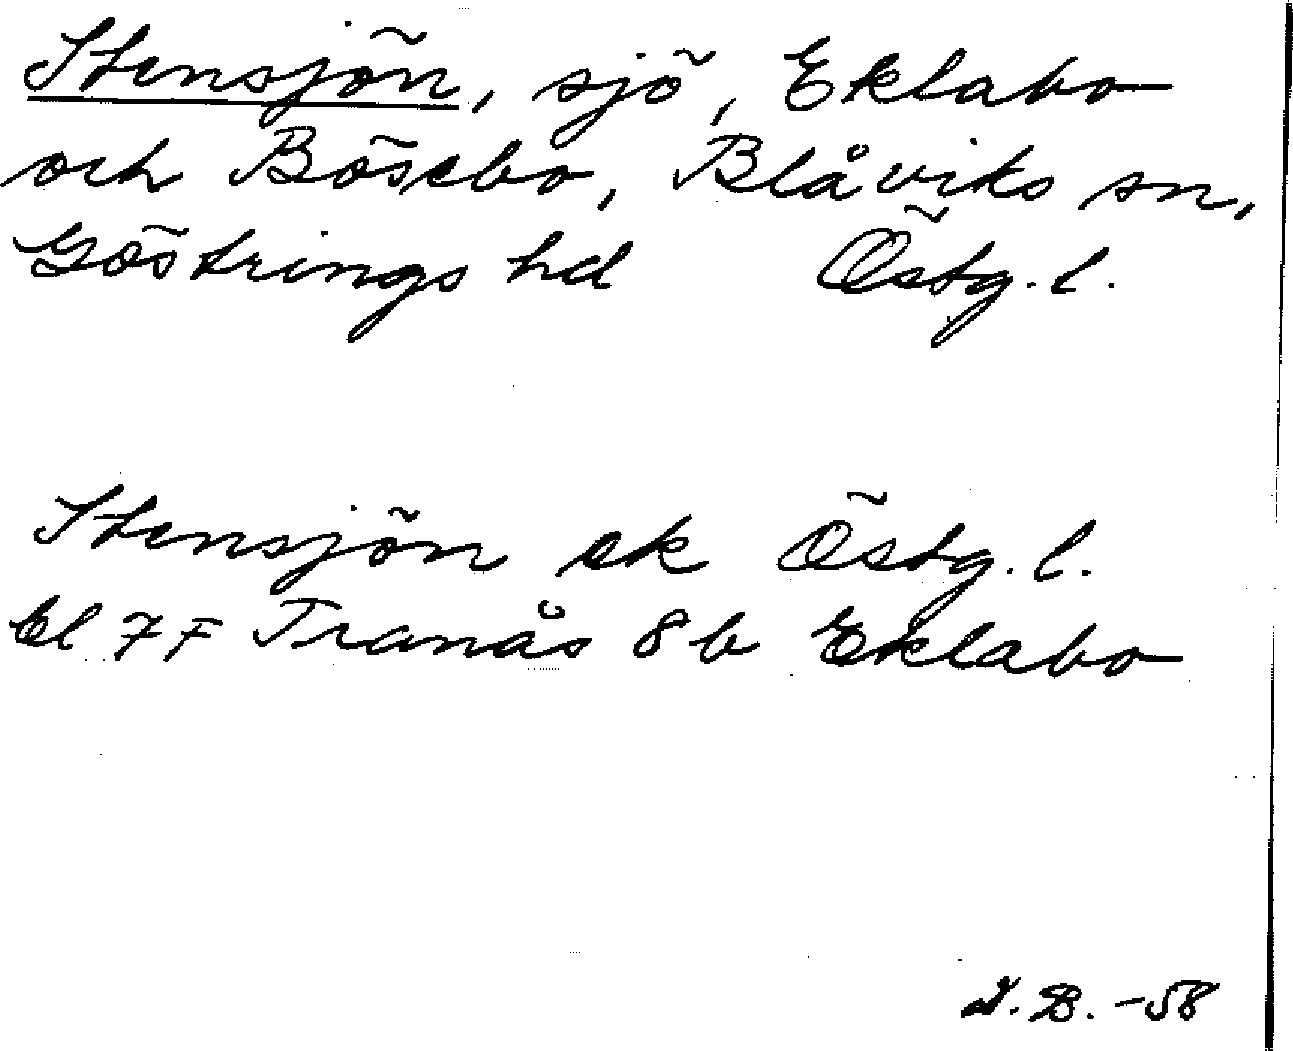 Stensjön, sjö, Eklabo
och Bösebo, Blåviks sn,
Göstrings hd Östg. l.
Stensjön ek Östg. l.
bl 7 F Tranås 8 b Eklabo
B. -58